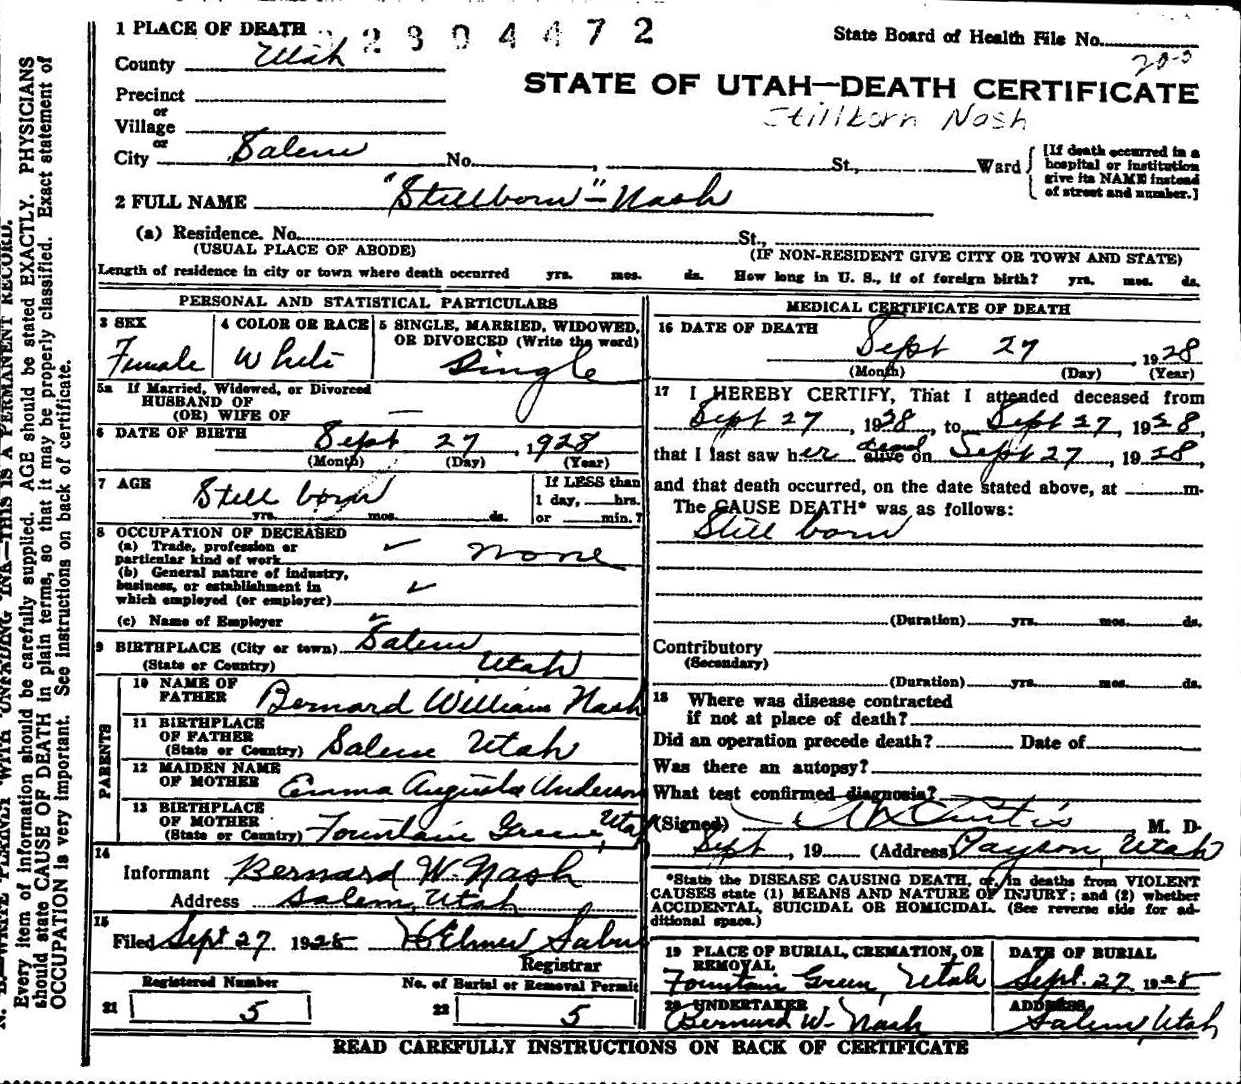 1 PLACE OF DEATH
2304472
State Board of Health File No.
20-5
County Utah
STATE OF UTAH—DEATH CERTIFICATE
Precinct
or
Village
Stillborn Nash
or
City Salem No. , St., Ward
[If death occurred in a
hospital or institution
give its NAME instead
of street and number.]
2 FULL NAME "Stillborn" - Nash
(a) Residence. No. St.,
(USUAL PLACE OF ABODE) (IF NON-RESIDENT GIVE CITY OR TOWN AND STATE)
Length of residence in city or town where death occurred yrs. mos. ds. How long in U. S., if of foreign birth? yrs. mos. ds.
PERSONAL AND STATISTICAL PARTICULARS
3 SEX
Female
4 COLOR OR RACE
White
5 SINGLE, MARRIED, WIDOWED,
OR DIVORCED (Write the word)
Single
5a If Married, Widowed, or Divorced
HUSBAND OF
(OR) WIFE OF —
6 DATE OF BIRTH Sept 27, 1928
(Month) (Day) (Year)
7 AGE Still born
yrs. mos. ds.
If LESS than
1 day, hrs.
or min.?
8 OCCUPATION OF DECEASED
(a) Trade, profession or
particular kind of work ✓ none
(b) General nature of industry,
business, or establishment in
which employed (or employer) ✓
(c) Name of Employer ✓
9 BIRTHPLACE (City or town) Salem
(State or Country) Utah
PARENTS
10 NAME OF
FATHER Bernard William Nash
11 BIRTHPLACE
OF FATHER
(State or Country) Salem Utah
12 MAIDEN NAME
OF MOTHER Emma Augusta Anderson
13 BIRTHPLACE
OF MOTHER
(State or Country) Fountain Green, Utah
14
Informant Bernard W. Nash
Address Salem, Utah
15
Filed Sept 27 1928 Elmer
Registrar
Registered Number
21 5
No. of Burial or Removal Permit
22 5
MEDICAL CERTIFICATE OF DEATH
16 DATE OF DEATH
Sept 27, 1928
(Month) (Day) (Year)
17 I HEREBY CERTIFY, That I attended deceased from
Sept 27, 1928, to Sept 27, 1928,
that I last saw her alive dead on Sept 27, 1928
and that death occurred, on the date stated above, at m.
The CAUSE DEATH* was as follows:
Still born
(Duration) yrs. mos. ds.
Contributory
(Secondary)
(Duration) yrs. mos. ds.
18 Where was disease contracted
if not at place of death?
Did an operation precede death? Date of
Was there an autopsy?
What test confirmed diagnosis?
(Signed) Curtis M. D.
Sept, 19 (Address) Payson, Utah
*State the DISEASE CAUSING DEATH, or, in deaths from VIOLENT
CAUSES state (1) MEANS AND NATURE OF INJURY; and (2) whether
ACCIDENTAL, SUICIDAL OR HOMICIDAL. (See reverse side for ad-
ditional space.)
19 PLACE OF BURIAL, CREMATION, OR
REMOVAL
Fountain Green, Utah
DATE OF BURIAL
Sept. 27 1928
20 UNDERTAKER
Bernard W. Nash
ADDRESS
Salem, Utah
READ CAREFULLY INSTRUCTIONS ON BACK OF CERTIFICATE
N. B.—WRITE PLAINLY WITH UNFADING INK—THIS IS A PERMANENT RECORD.
Every item of information should be carefully supplied. AGE should be stated EXACTLY. PHYSICIANS
should state CAUSE OF DEATH in plain terms, so that it may be properly classified. Exact statement of
OCCUPATION is very important. See instructions on back of certificate.